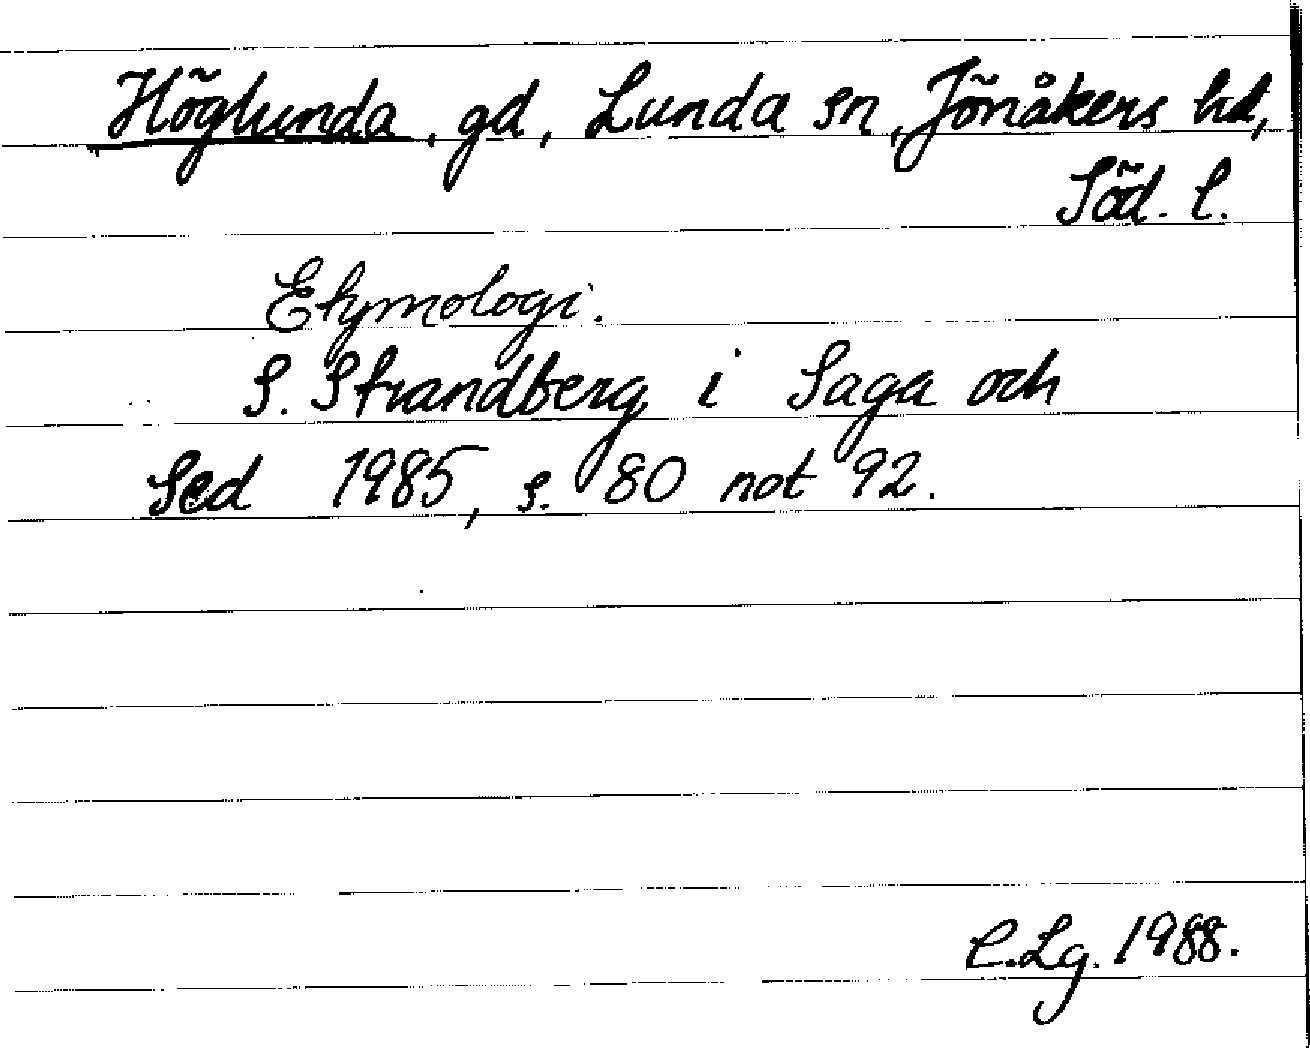 Höglunda, gd, Lunda sn, Jönåkers hd,
Söd. l.
Etymologi.
S. Strandberg i Saga och
Sed 1985, s. 80 not 92.
C.Lg. 1988.